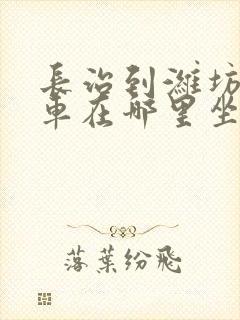 長治到濰坊
車在哪里坐
落葉紛飛